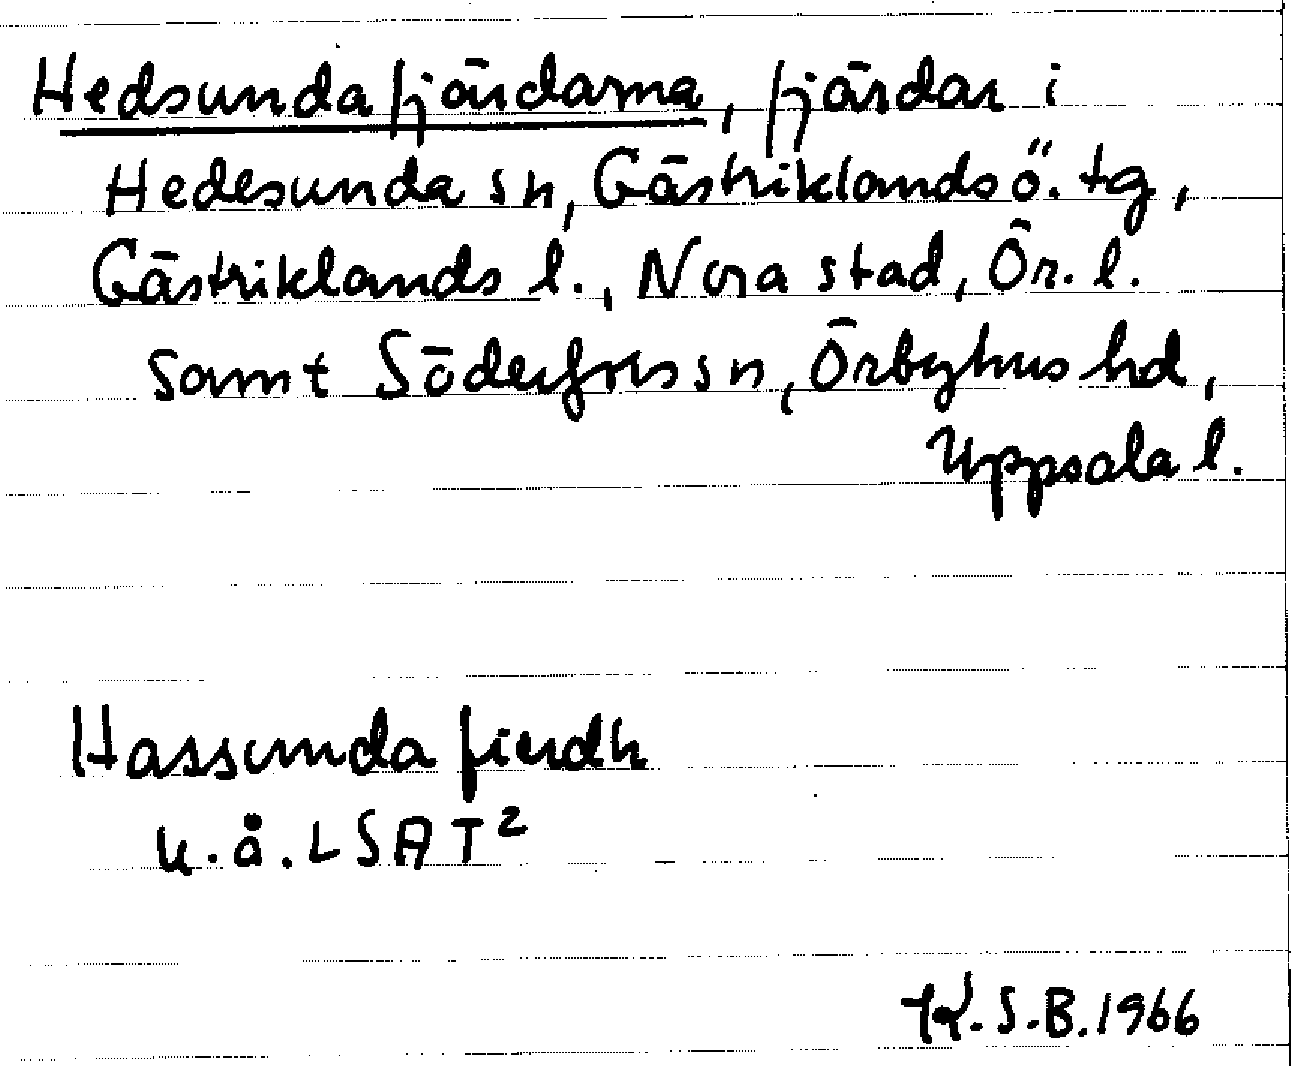 Hedsundafjärdarna, fjärdar i
Hedesunda sn, Gästriklands ö. tg,
Gästriklands l., Nora stad, Ör. l.
samt Söderfors sn, Örbyhus hd,
Uppsala l.
Hassunda fierdh
u.å. LSAT²
K.S.B. 1966